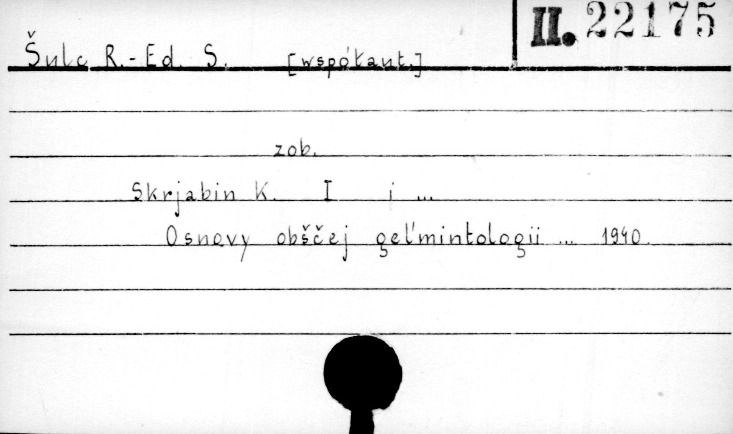 II. 22175
Šulc R.-Ed. S. [współaut.]
zob.
Skrjabin K. I i ...
Osnovy obščej gel'mintologii ... 1940.